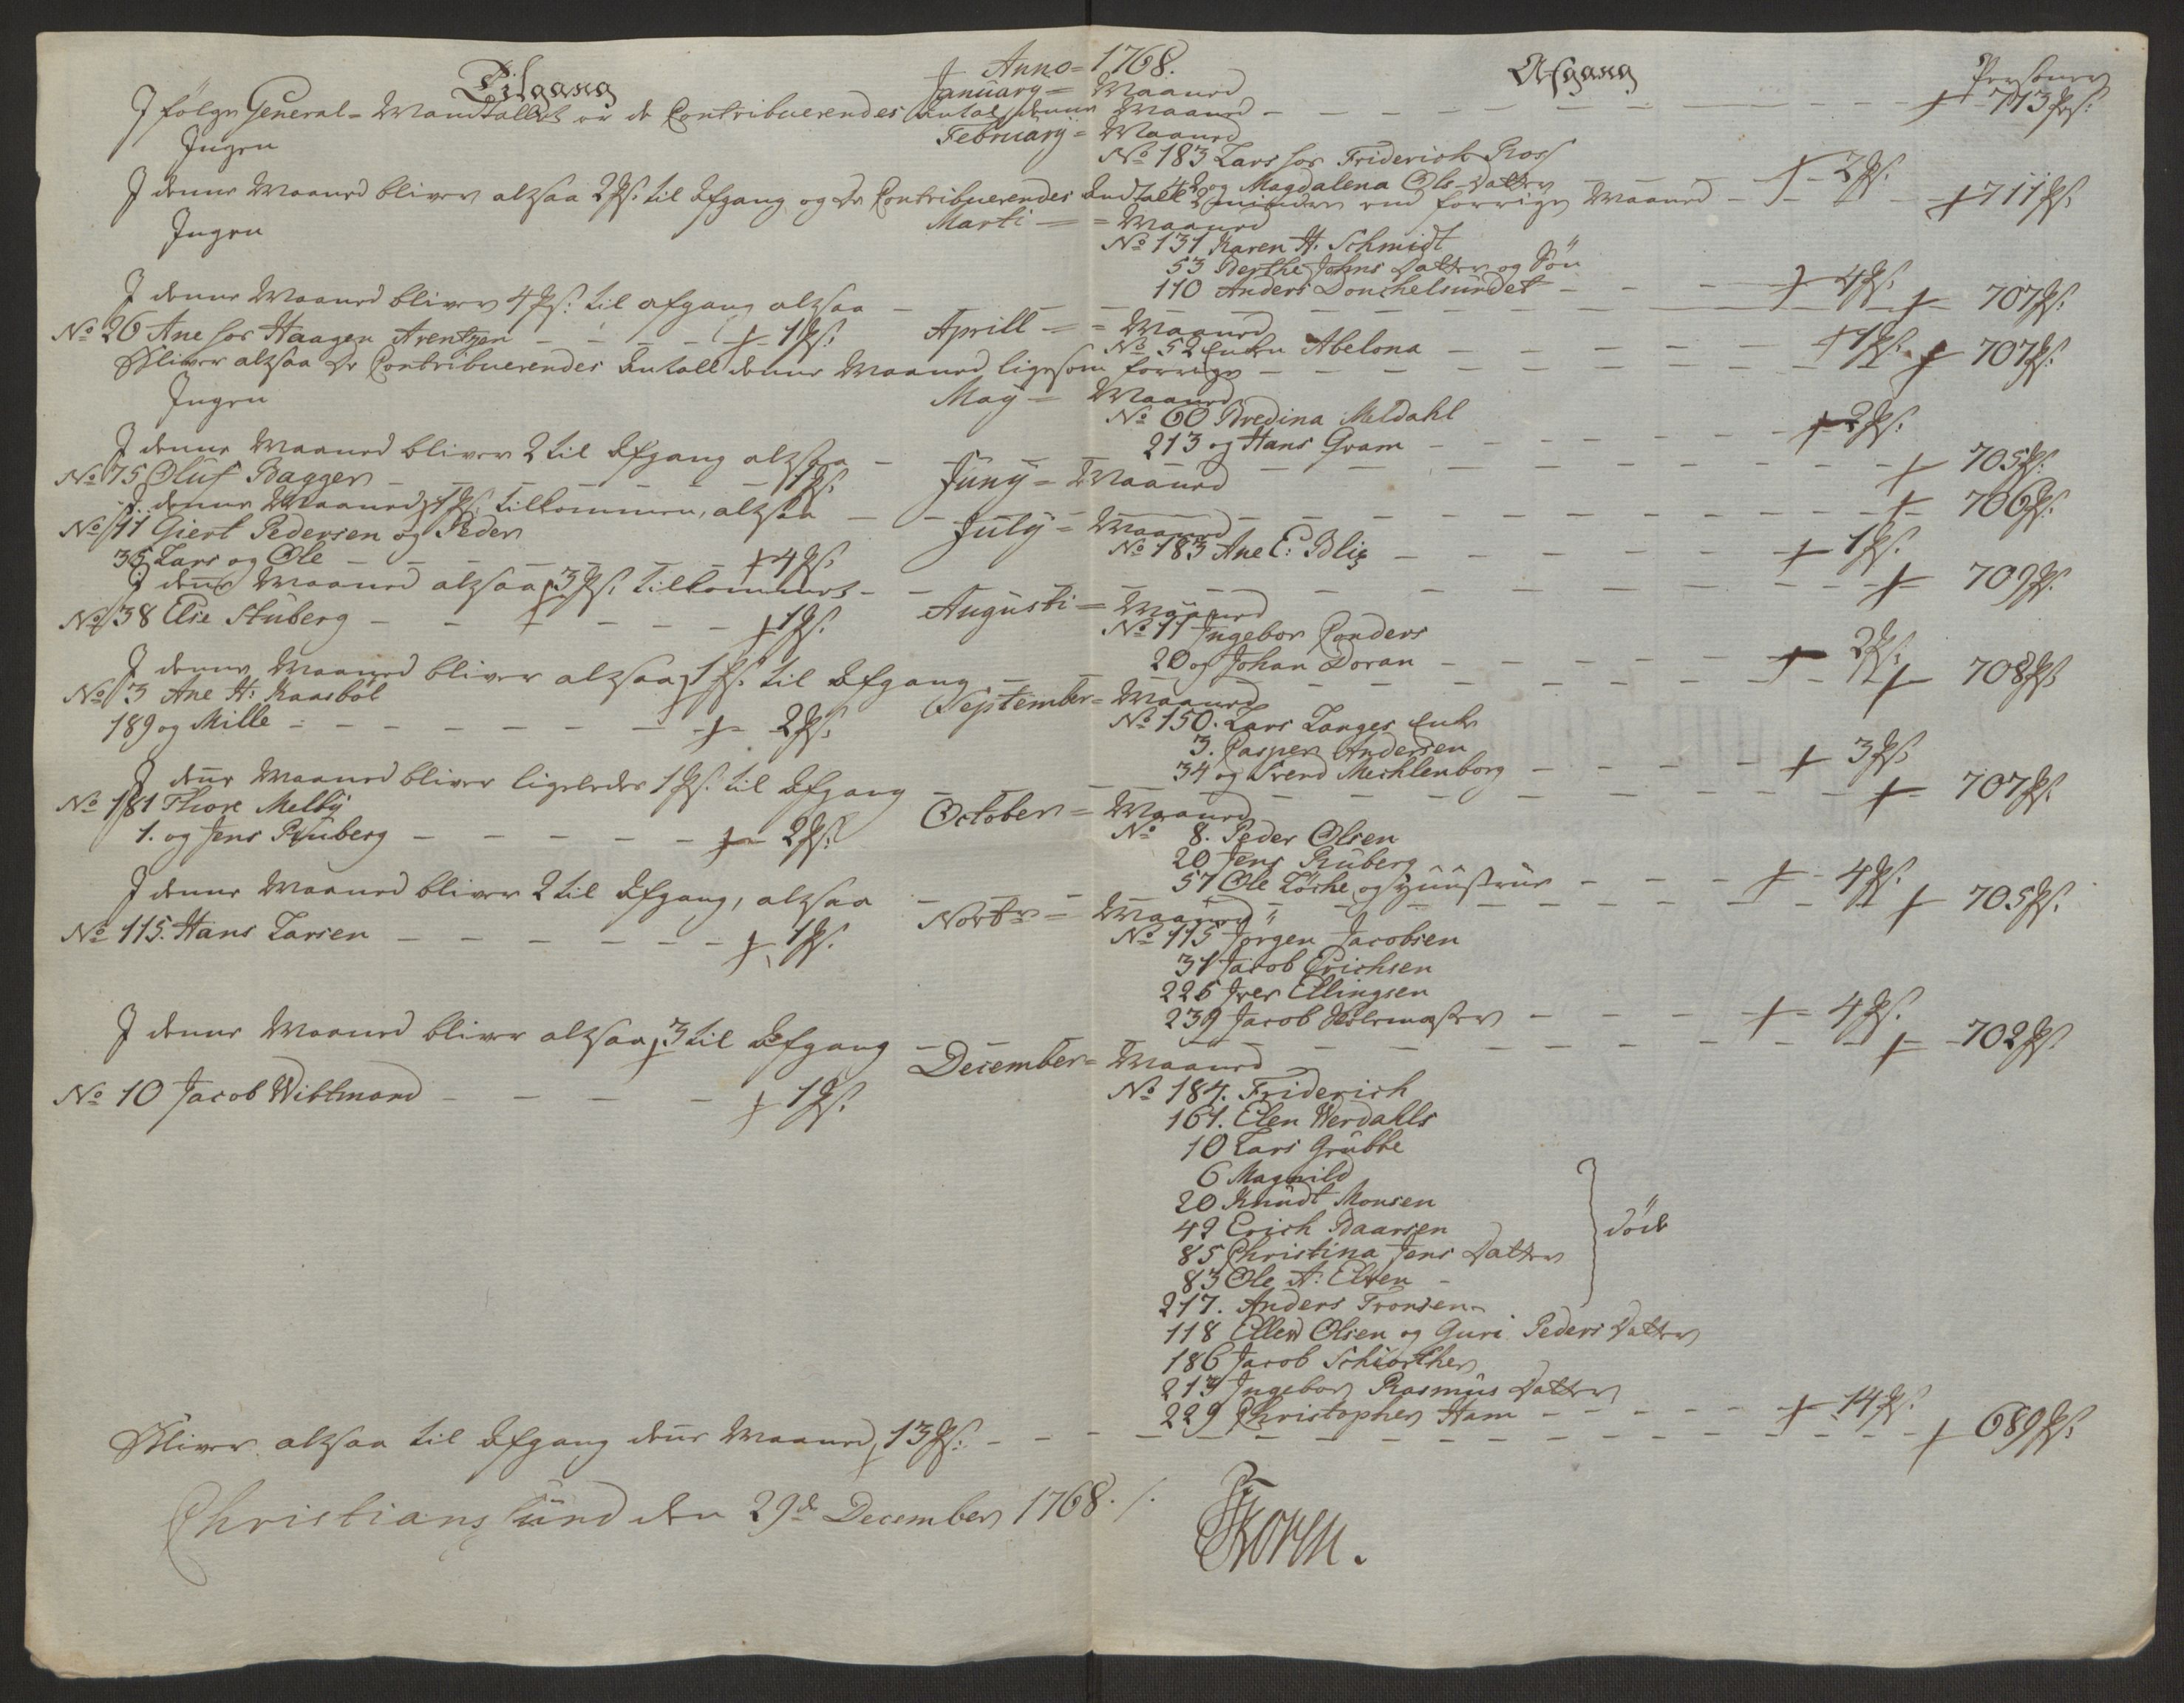 Anno = 1768.
Tilgang
Afgang
Personer
January = Maaned
I følge General = Mandtallet er de Contribuerendes Antal denne Maaned - - - 713 Ps:
February = Maaned
Ingen
No 183 Lars hos Friderich Ross
42 og Magdalena Ols Datter - - 2 Ps:
I denne Maaned bliver altsaa 2 Ps: til Afgang og de Contribuerendes Andtall 2 mindre end forrige Maaned - - 711 Ps:
Marti = Maaned
Ingen
No 131 Karen H. Schmidt
53 Berthe Johns Datter og Søn
110 Anders Donchelsundet - - - 4 Ps:
I denne Maaned bliver 4 Ps: til afgang altsaa - - - 707 Ps:
Aprill = Maaned
No 26 Ane hos Haagen Arentzen - - - 1 Ps:
No 52 Enken Abelona - - - 1 Ps:
Bliver altsaa de Contribuerendes Antall denne Maaned ligesom forrige - - - 707 Ps:
May = Maaned
Ingen
No 60 Bredina Meldahl
213 og Hans Gram - - - 2 Ps:
I denne Maaned bliver 2 til Afgang altsaa - - - 705 Ps:
Juny = Maaned
No 75 Oluf Bagger - - - 1 Ps:
I denne Maaned 1 Ps: tilkommen, altsaa - - - 706 Ps:
July = Maaned
No 11 Giert Pedersen og Peder
35 Lars og Ole - - - 4 Ps:
No 183 Ane C: Blix - - - 1 Ps:
I denne Maaned altsaa 3 Ps: tilkommet - - - 709 Ps:
Augusti = Maaned
No 38 Else Stuberg - - - 1 Ps:
No 11 Ingebor Conders
20 og Johan Doran - - - 2 Ps:
I denne Maaned bliver altsaa 1 Ps: til Afgang - - - 708 Ps:
September = Maaned
No 3 Ane H: Kaasbøl
189 og Mille - - - 2 Ps:
No 150. Lars Langes Enke
3. Casper Andersen
34 og Svend Mechlenborg - - - 3 Ps:
I denne Maaned bliver ligeledes 1 Ps: til Afgang - - - 707 Ps:
October = Maaned
No 181 Thore Melby
1. og Jens Ruberg - - - 2 Ps:
No 8. Peder Olsen
20 Jens Ruberg
57 Ole Løche og Hustrue - - - 4 Ps:
I denne Maaned bliver 2 til Afgang, altsaa - - - 705 Ps:
Novbr = Maaned
No 115. Hans Larsen - - - 1 Ps:
No 115 Jørgen Jacobsen
31 Jacob Erichsen
226 Iver Ellingsen
239 Jacob - - - 4 Ps:
I denne Maaned bliver altsaa 3 til Afgang - - - 702 Ps:
December = Maaned
No 10 Jacob Wittmand - - - 1 Ps:
No 184. Friderich
161. Elen Werdahls
10 Lars Grubbe
6 Magnild
20 Knudt Monsen
42 Erich Baarsen
85 Christina Jens Datter
83 Ole A: Elven -
døde
217. Anders Tronsen
118 Ellend Olsen og Guri Peders Datter
186 Jacob Schiørther
213 Ingebor Rasmus Datter
229 Christopher Ham - - - 14 Ps:
Bliver altsaa til Afgang denne Maaned 13 Ps: - - - 689 Ps:
Christiansund den 29de December 1768. /.